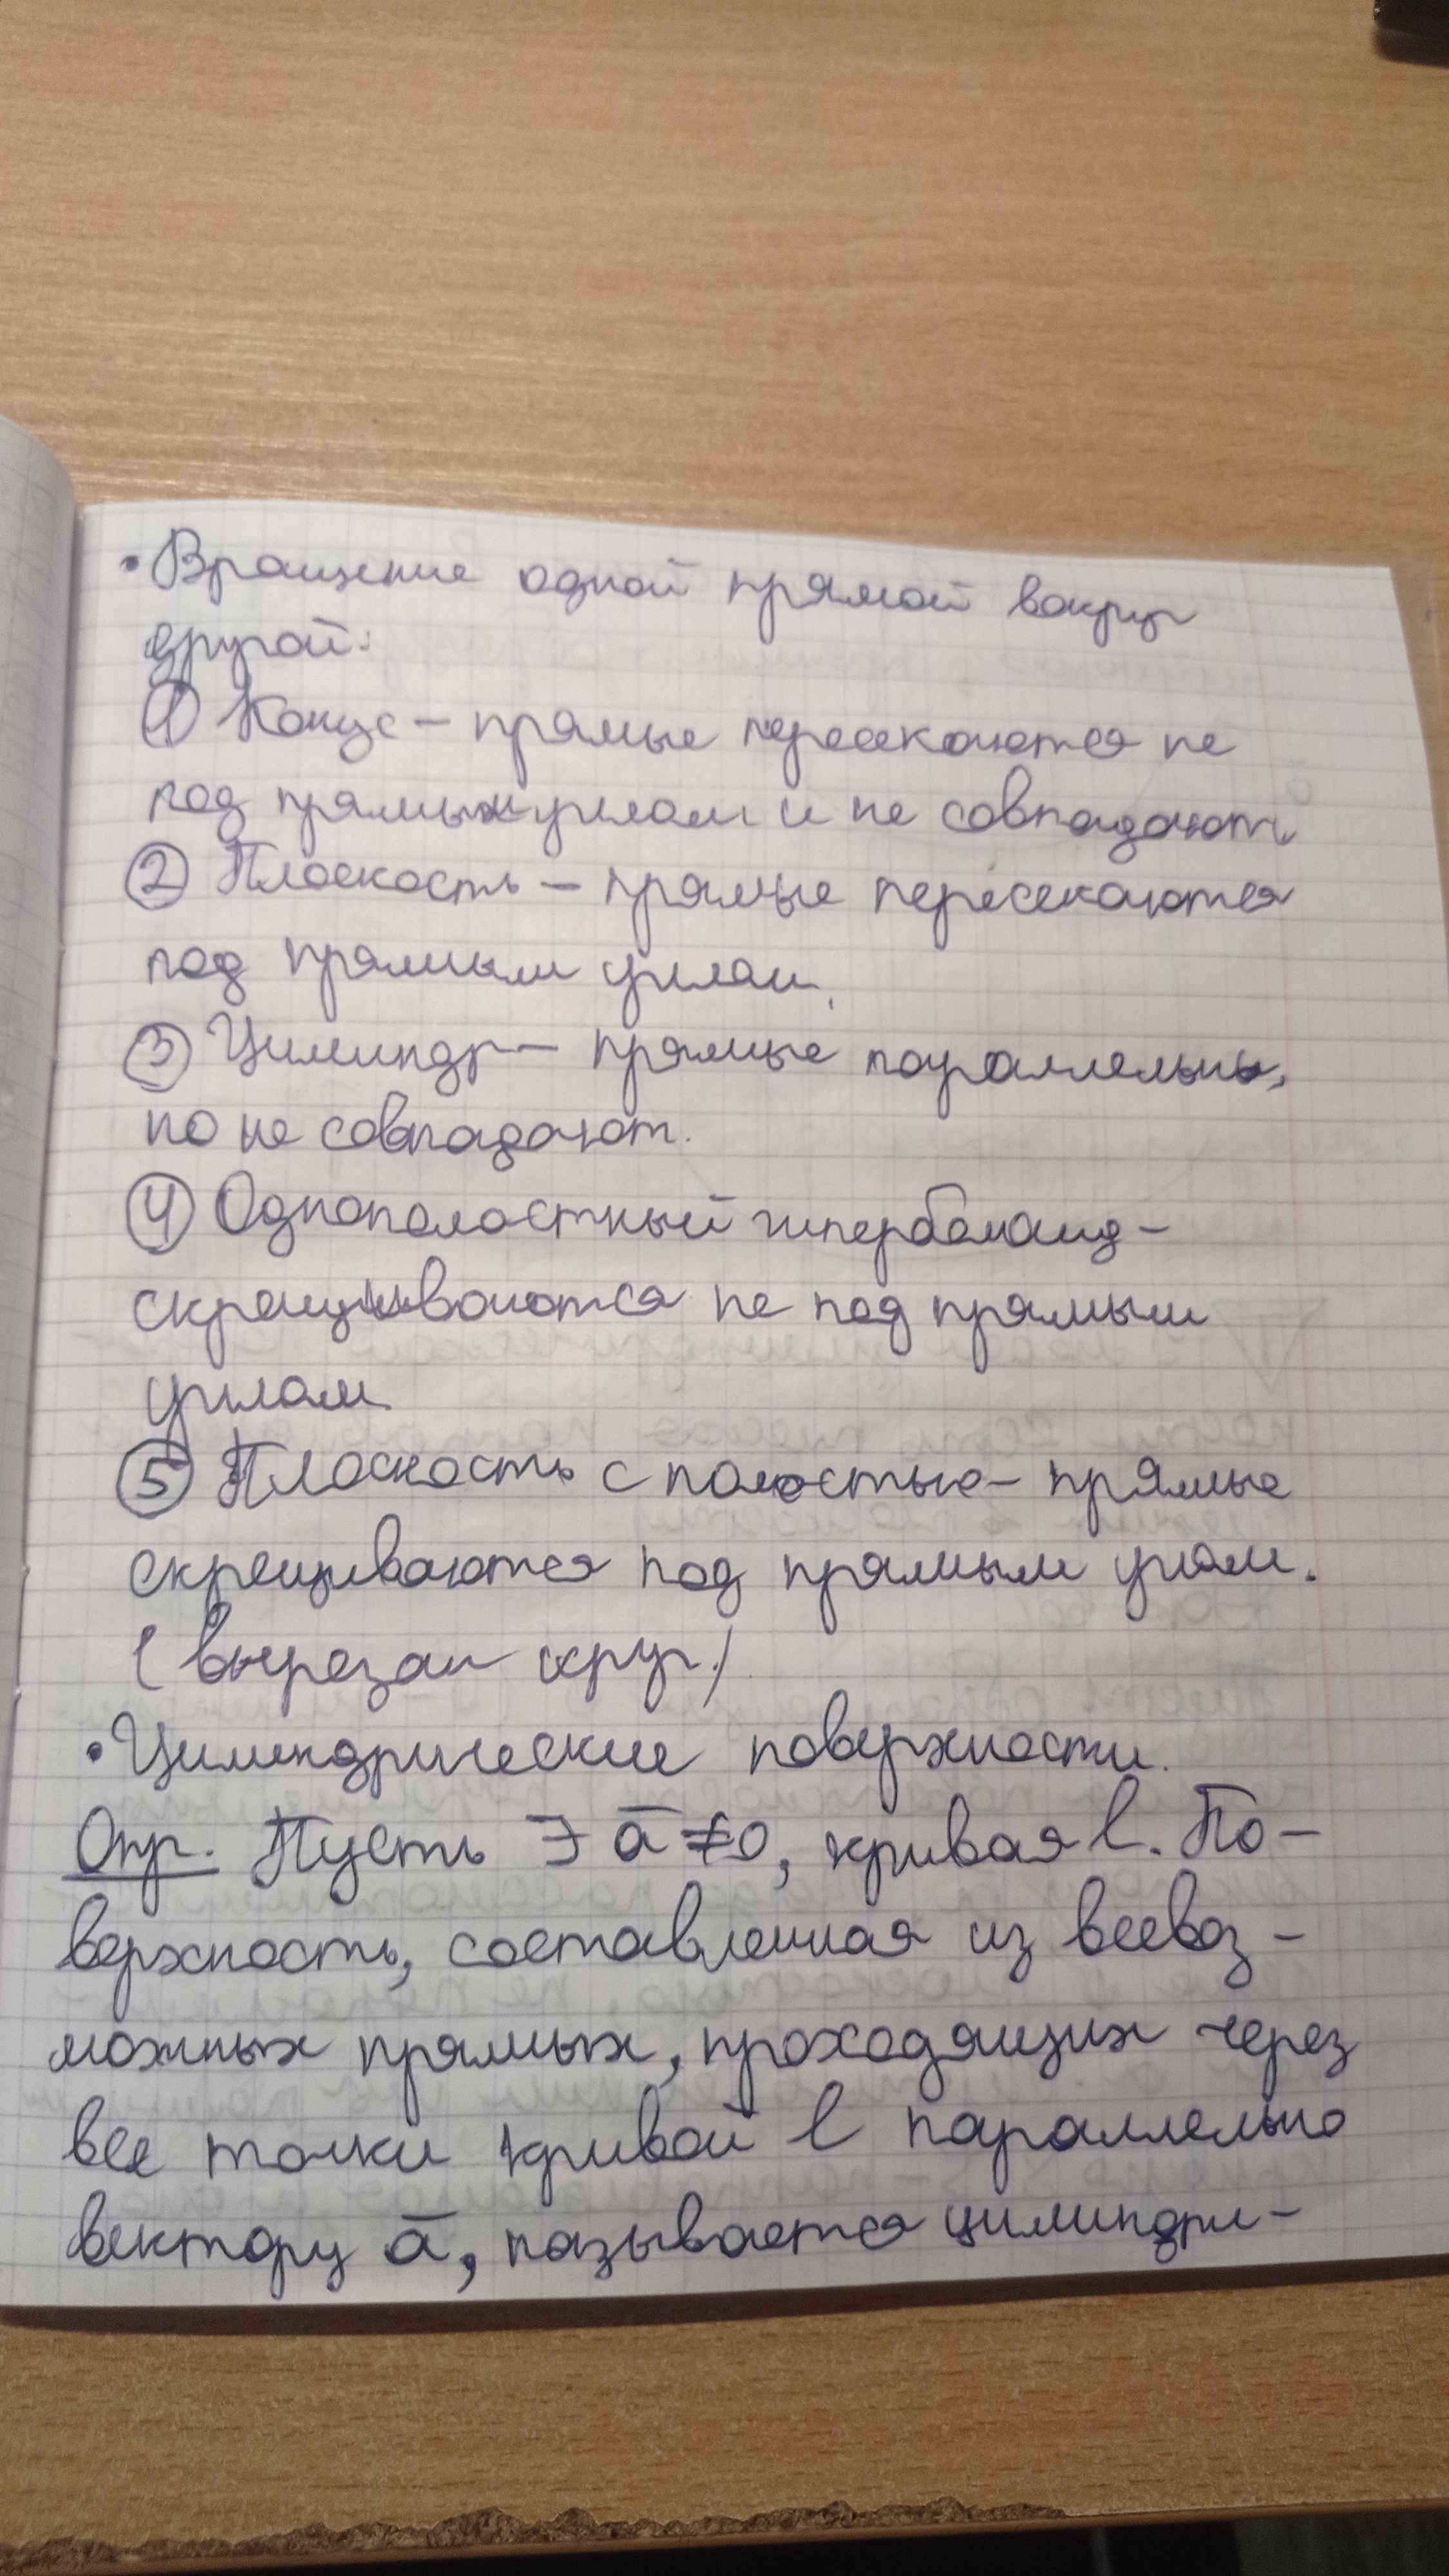 • Вращение одной прямой вокруг
другой:
① Конус – прямые пересекаются не
под прямым углом и не совпадают
② Плоскость – прямые пересекаются
под прямым углом.
③ Цилиндр – прямые параллельны,
но не совпадают.
④ Однополостный гиперболоид –
скрещиваются не под прямым
углом
⑤ Плоскость с полостью – прямые
скрещиваются под прямым углом.
(вырезан круг)
• Цилиндрические поверхности.
Опр. Пусть ∃ a̅ ≠ 0, кривая l. По-
верхность, составленная из всевоз-
можных прямых, проходящих через
все точки кривой l параллельно
вектору a̅, называется цилиндри-